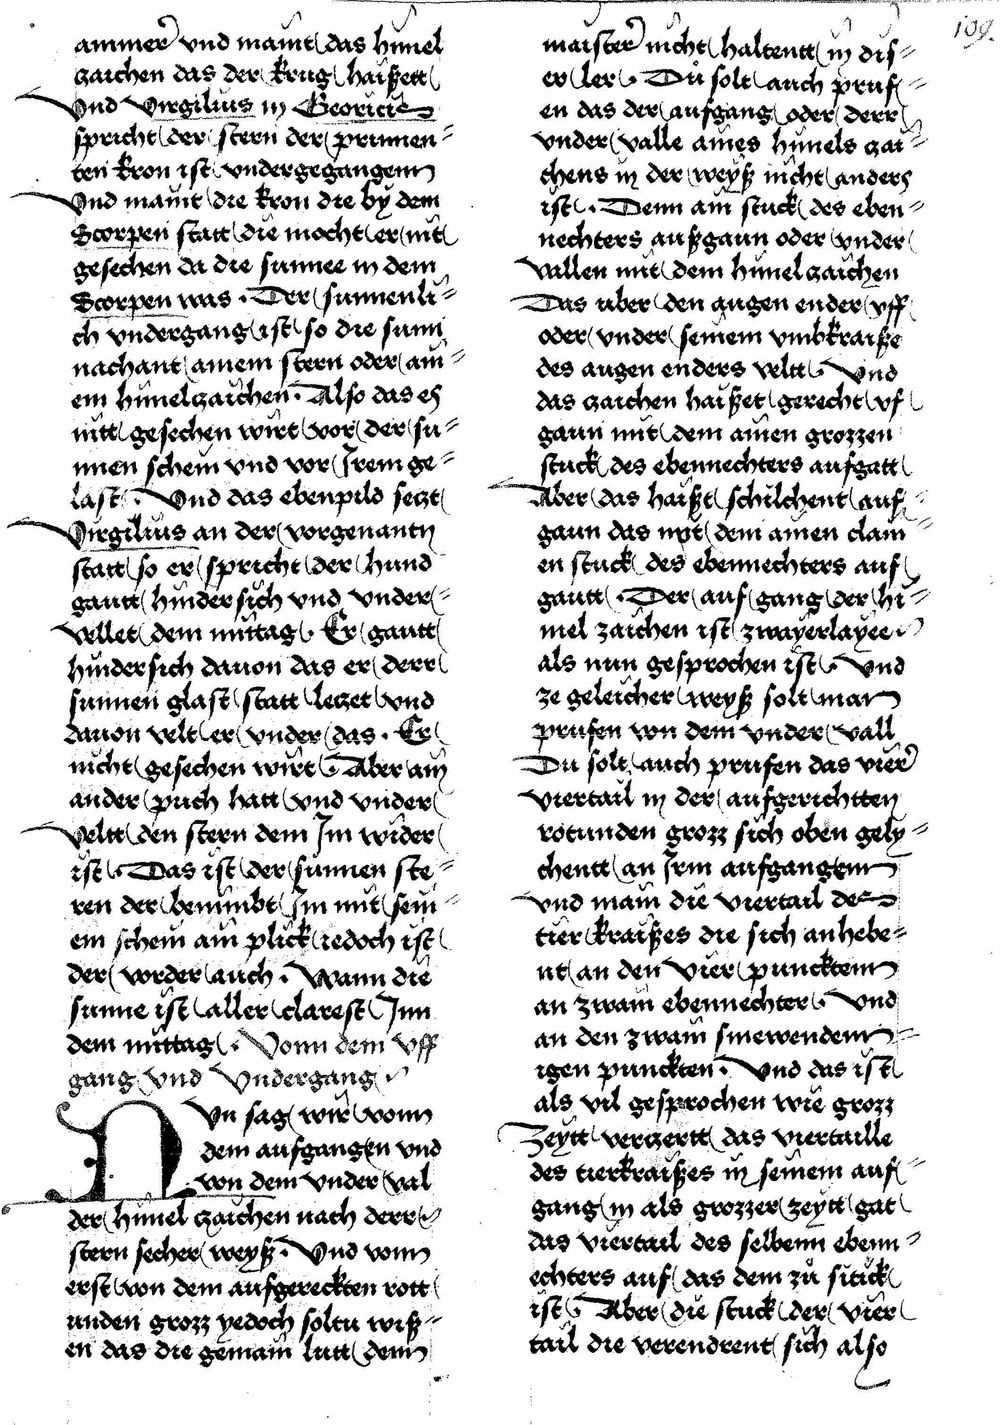 109.
ammer vnd maint das himel
zaichen das der krug haißett
Vnd Virgilius in Georicis
spricht der stern der prinnen=
ten kron ist vndergegangenn
Vnd maint die kron die by dem
Scorpen statt die mocht er nit
gesechen da die sunnee in dem
Scorpen was · Der sunnenli=
ch vndergang ist so die sunn
nachant ainem stern oder ain=
em himelzaichen · Also das es
nitt gesechen wirt vor der su=
nnen schein vnd vor Irem ge=
last · Vnd das ebenpild setzt
Virgilius an der vorgenantn
statt so er spricht der hund
gautt hindersich vnd vnder=
vellet dem mittag · Er gautt
hindersich dauon das er derr
sunnen glast statt letzet vnd
dauon velt er vnder das · Er
nicht gesechen wirt · Aber ain
ander puch hatt vnd vnder
veltt den stern dem Im wider
ist · Das ist der sunnen ste=
ren der benimbt Im mit sein=
em schein ain plick iedoch ist
der vorder auch · Wann die
sunne ist aller clarest Inn
dem mittag · Vonn dem vff
gang vnd Vndergang
Nvn sag wir vonn
dem aufgangen vnd
von dem vnder val
der himel zaichen nach derr
stern secher weyß · Vnd vonn
erst von dem aufgereckten rott
unden grozz yedoch soltu wiß=
en das die gemain lutt denn
maister nicht haltentt in dis=
er ler · Dů solt auch pruf=
en das der aufgang oder derr
vnder valle aines himels zai=
chens in der weyß nicht anders
ist · Denn ain stuck des eben=
nechters außgaun oder vnder
vallen mit dem himelzaichen
Das uber den augen ender vff
oder vnder seinem vmbkraiße
des augen enders veltt · Vnd
das zaichen haißet gerecht vf
gaun mit dem ainen grozzen
stuck des ebennechters aufgatt
Aber das haißt schilchent auf=
gaun das mit dem ainen clain=
en stuck des ebennechters auf
gautt · Der auf gang der hi=
mel zaichen ist zwayerlayee
als nun gesprochen ist · Vnd
ze geleicher weyß solt man
prufen von dem vnder vall
Du solt auch prufen das vier
viertail in der aufgerichtten
rotunden grozz sich oben gely=
chentt an Irm aufgangenn
vnd main die viertail des
tier kraißes die sich anhebe=
nt an den vier puncktenn
an zwain ebennechter · Vnd
an den zwain sinewendenn=
igen punckten · Vnd das ist
als vil gesprochen wie grozz
Zeytt verzertt das viertaille
des tierkraißes in seinem auf
gang in als grozzer zeytt gat
das viertail des selbenn ebenn=
echters auf das dem zů stuck
ist · Aber die stuck der vier
tail die verendrent sich also